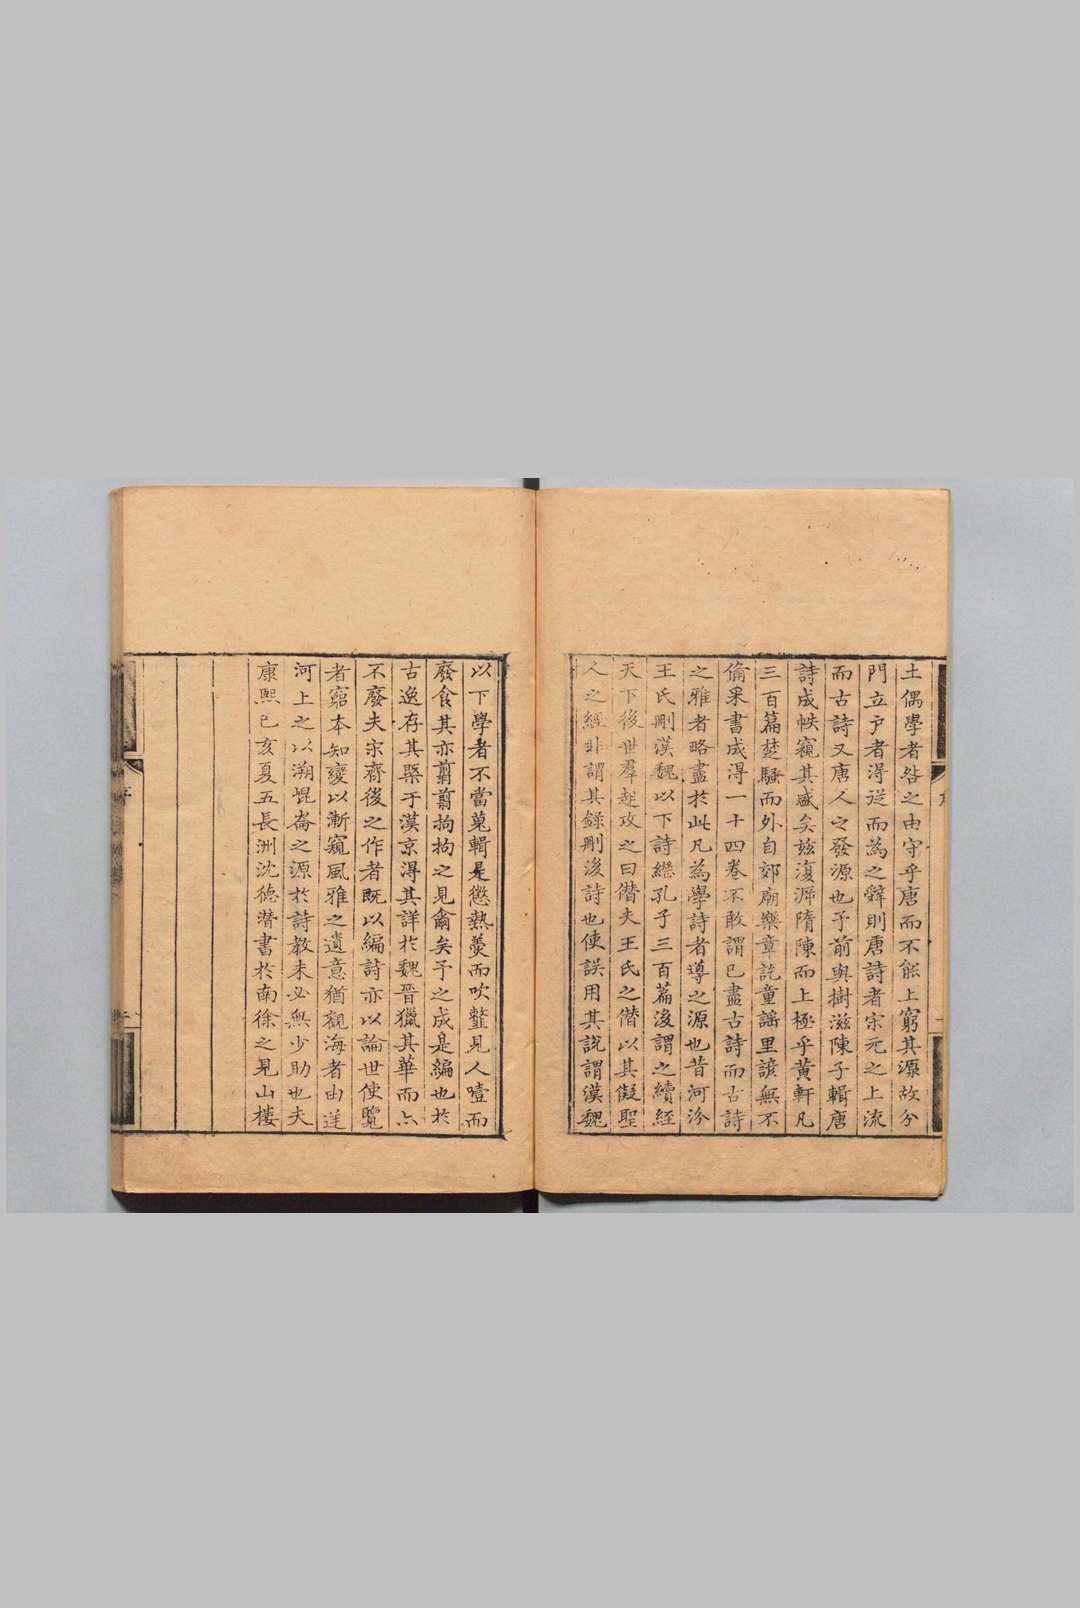 土偶學者咎之由守乎唐而不能上窮其源故分
門立戶者得從而為之辭則唐詩者宋元之上流
而古詩又唐人之發源也予前與樹滋陳子輯唐
詩成帙窺其盛矣茲復泝隋陳而上極乎黃軒凡
三百篇楚騷而外自郊廟樂章訖童謠里諺無不
備采書成得一十四卷不敢謂已盡古詩而古詩
之雅者略盡於此凡為學詩者導之源也昔河汾
王氏刪漢魏以下詩繼孔子三百篇後謂之續經
天下後世羣起攻之曰僭夫王氏之僭以其儗聖
人之經非謂其錄刪後詩也使誤用其說謂漢魏
以下學者不當蒐輯是懲熱羹而吹韲見人噎而
廢食其亦翦翦拘拘之見爾矣予之成是編也於
古逸存其槩于漢京得其詳於魏晉獵其華而亦
不廢夫宋齊後之作者既以編詩亦以論世使覽
者窮本知變以漸窺風雅之遺意猶觀海者由逆
河上之以溯崐崙之源於詩教未必無少助也夫
康熙已亥夏五長洲沈德潛書於南徐之見山樓
序